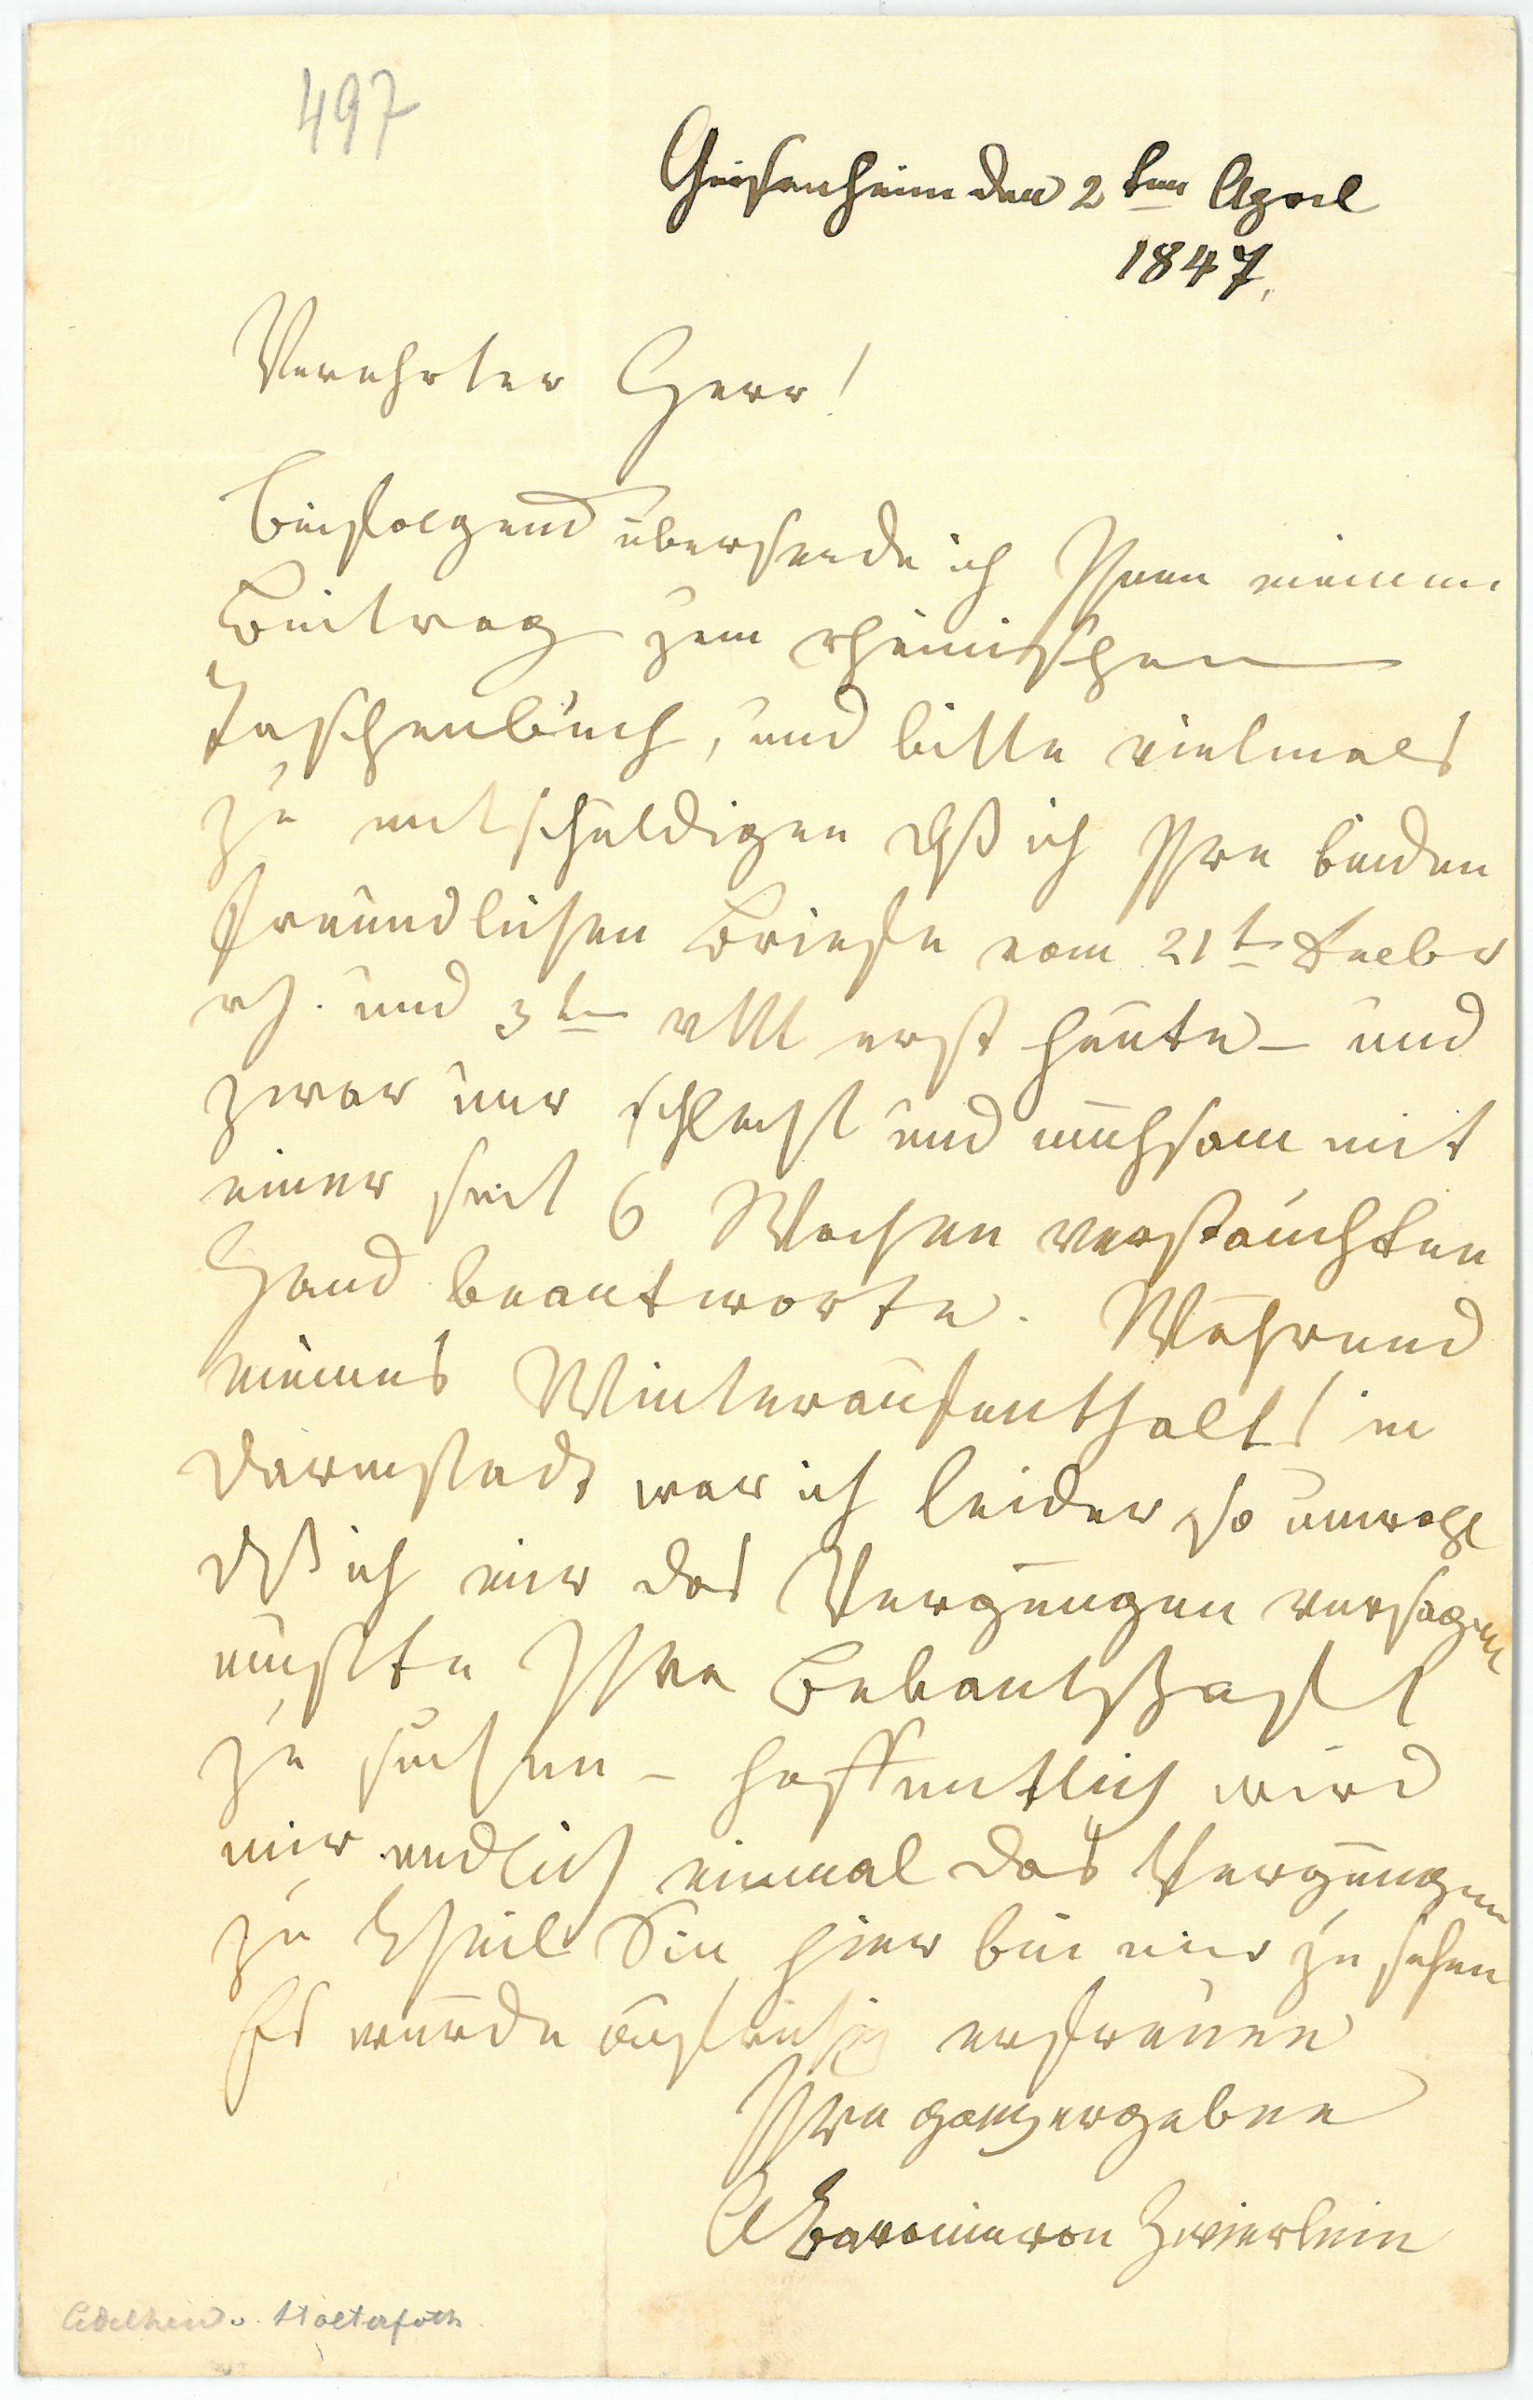 497
Geisenheim den 2ten April
1847.
Verehrter Herr!
Beifolgend übersende ich Ihnen meinen
Beitrag zum rheinischen
Taschenbuch, und bitte vielmals
zu entschuldigen dß ich Ihre beiden
freundlichen Briefe vom 21t
und 3ten erst heute – und
zwar nur schlecht und mühsam mit
einer seit 6 Wochen verstauchten
Hand beantworte. Während
meines Winteraufenthalts in
Darmstadt war ich leider so unwohl
dß ich mir das Vergnügen versagen
mußte Ihre Bekantschaft
zu suchen – hoffentlich wird
mir endlich einmal das Vergnügen
zu Theil Sie hier bei mir zu sehen
Es würde aufrichtig erfreuen
Ihre ganz ergebne
A Baronin von Zwierlein
Adelheid v. Stolterfoth.